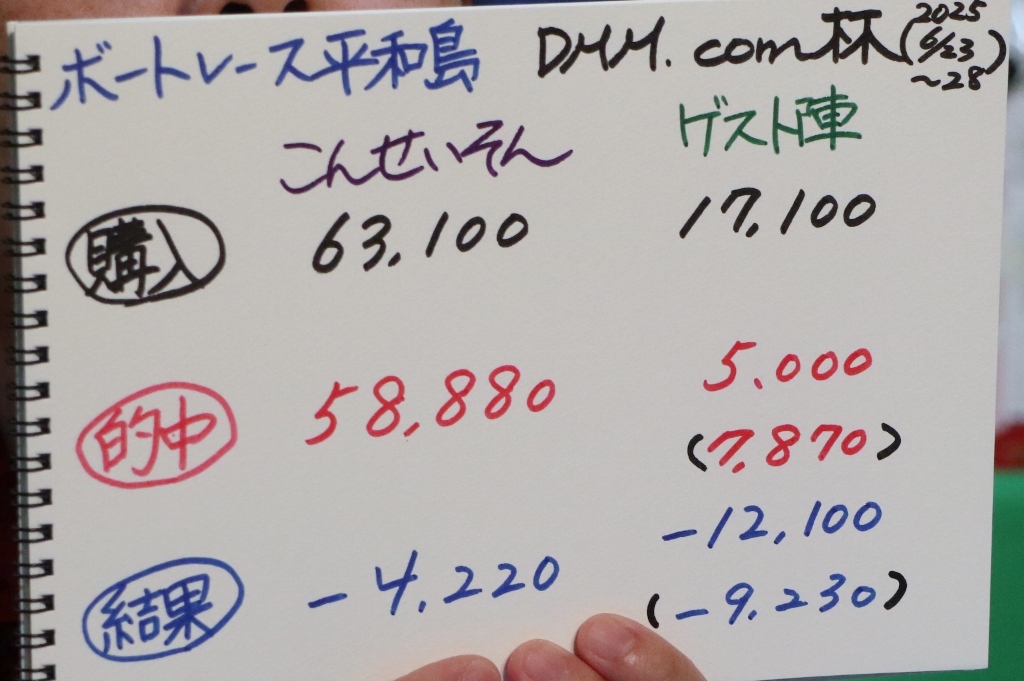 ボートレース平和島 DMM.com杯(2025 6/23 ~28)
こんせいそん ゲスト陣
購入 63,100 17,100
的中 58,880 5.000
(7.870)
結果 -4,220 -12,100
(-9.230)